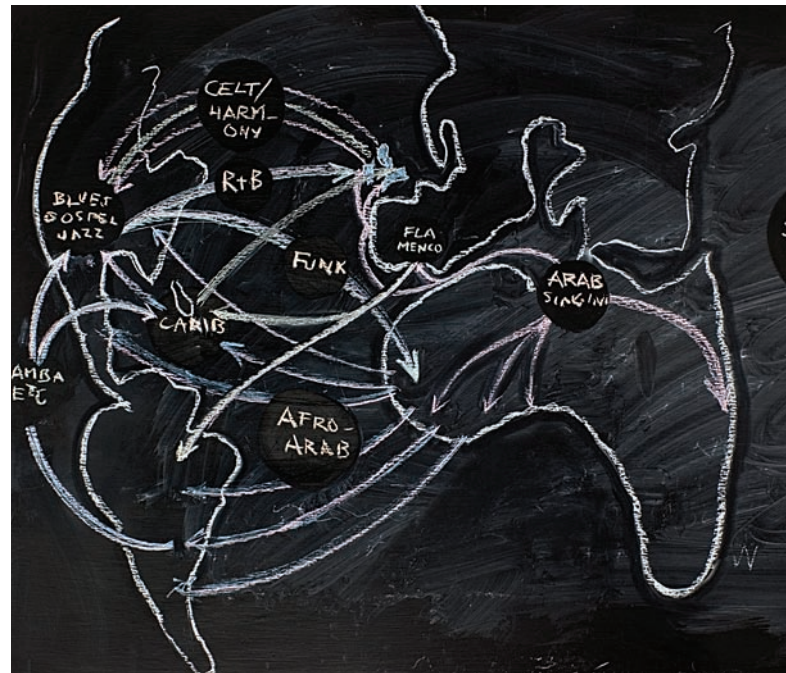 CELT/
HARM-
ONY
R+B
BLUES
GOSPEL
JAZZ
FLA
MENCO
FUNK
ARAB
SINGIN
CARIB
AMBA
ETC
AFRO-
ARAB